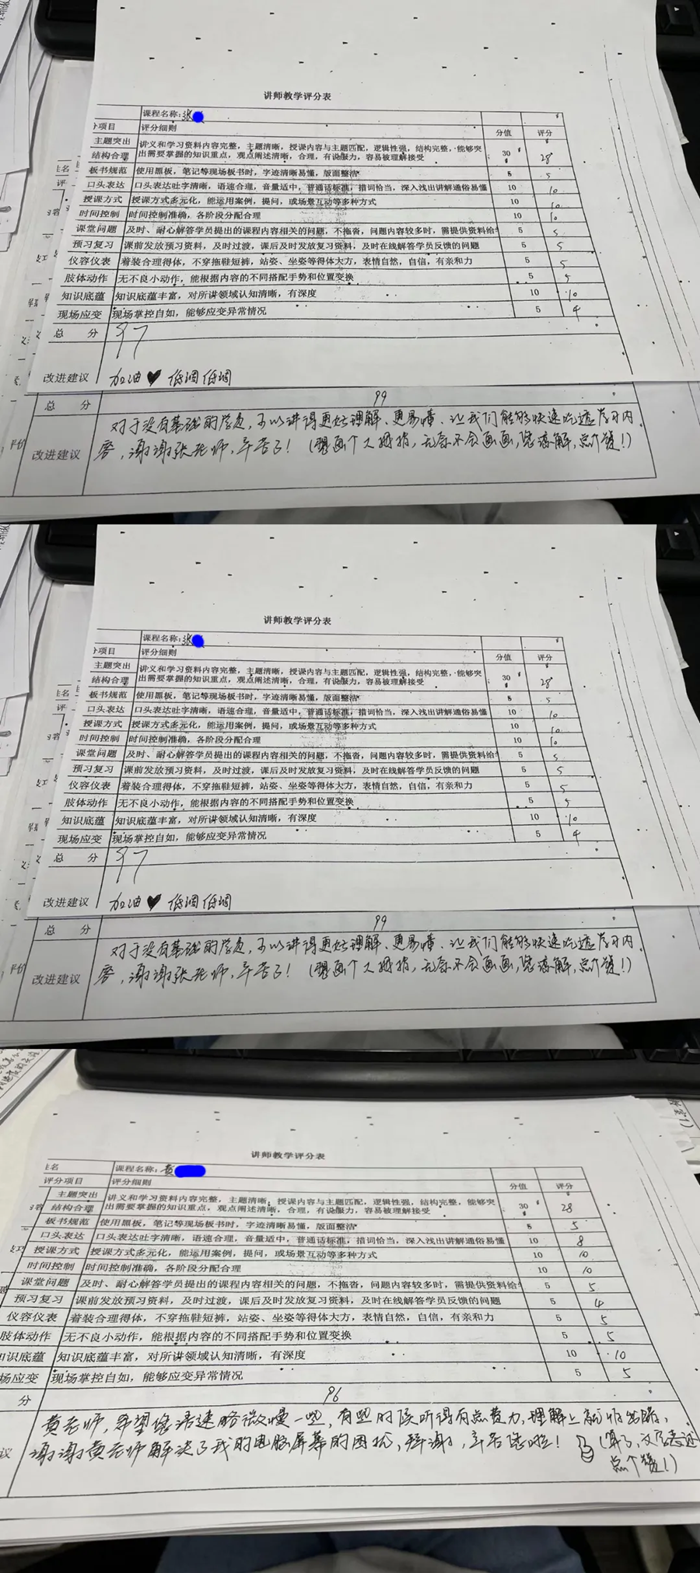 讲师教学评分表
课程名称:张
项目 评分细则 分值 评分
主题突出 讲义和学习资料内容完整,主题清晰,授课内容与主题匹配,逻辑性强,结构完整,能够突
结构合理 出需要掌握的知识重点,观点阐述清晰,合理,有说服力,容易被理解接受 30 28
板书规范 使用黑板,笔记等现场板书时,字迹清晰易懂,版面整洁 5
口头表达 口头表达吐字清晰,语速合理,音量适中,普通话标准,措词恰当,深入浅出讲解通俗易懂 10 10
授课方式 授课方式多元化,能运用案例,提问,或场景互动等多种方式 10 10
时间控制 时间控制准确,各阶段分配合理 10 10
课堂问题 及时、耐心解答学员提出的课程内容相关的问题,不拖沓,问题内容较多时,需提供资料给 5 5
预习复习 课前发放预习资料,及时过渡,课后及时发放复习资料,及时在线解答学员反馈的问题 5 5
仪容仪表 着装合理得体,不穿拖鞋短裤,站姿、坐姿等得体大方,表情自然,自信,有亲和力 5 5
肢体动作 无不良小动作,能根据内容的不同搭配手势和位置变换 5 5
知识底蕴 知识底蕴丰富,对所讲领域认知清晰,有深度 10 10
现场应变 现场掌控自如,能够应变异常情况 5 4
总 分 97
改进建议 加油♥ 低调低调
总 分 99
对于没有基础的学员,可以讲得更好理解、更易懂,让我们能够快速吃透学习内
改进建议 容,谢谢张老师,辛苦了!(想画个大拇指,无奈不会画画,您谅解,点个赞!)
讲师教学评分表
课程名称:张
项目 评分细则 分值 评分
主题突出 讲义和学习资料内容完整,主题清晰,授课内容与主题匹配,逻辑性强,结构完整,能够突
结构合理 出需要掌握的知识重点,观点阐述清晰,合理,有说服力,容易被理解接受 30 28
板书规范 使用黑板,笔记等现场板书时,字迹清晰易懂,版面整洁 5
口头表达 口头表达吐字清晰,语速合理,音量适中,普通话标准,措词恰当,深入浅出讲解通俗易懂 10 10
授课方式 授课方式多元化,能运用案例,提问,或场景互动等多种方式 10 10
时间控制 时间控制准确,各阶段分配合理 10 10
课堂问题 及时、耐心解答学员提出的课程内容相关的问题,不拖沓,问题内容较多时,需提供资料给 5 5
预习复习 课前发放预习资料,及时过渡,课后及时发放复习资料,及时在线解答学员反馈的问题 5 5
仪容仪表 着装合理得体,不穿拖鞋短裤,站姿、坐姿等得体大方,表情自然,自信,有亲和力 5 5
肢体动作 无不良小动作,能根据内容的不同搭配手势和位置变换 5 5
知识底蕴 知识底蕴丰富,对所讲领域认知清晰,有深度 10 10
现场应变 现场掌控自如,能够应变异常情况 5 4
总 分 97
改进建议 加油♥ 低调低调
总 分 99
对于没有基础的学员,可以讲得更好理解、更易懂,让我们能够快速吃透学习内
改进建议 容,谢谢张老师,辛苦了!(想画个大拇指,无奈不会画画,您谅解,点个赞!)
讲师教学评分表
姓名 课程名称:黄
评分项目 评分细则 分值 评分
主题突出 讲义和学习资料内容完整,主题清晰,授课内容与主题匹配,逻辑性强,结构完整,能够突
结构合理 出需要掌握的知识重点,观点阐述清晰,合理,有说服力,容易被理解接受 30 28
板书规范 使用黑板,笔记等现场板书时,字迹清晰易懂,版面整洁 5
口头表达 口头表达吐字清晰,语速合理,音量适中,普通话标准,措词恰当,深入浅出讲解通俗易懂 10 8
授课方式 授课方式多元化,能运用案例,提问,或场景互动等多种方式 10 10
时间控制 时间控制准确,各阶段分配合理 10 10
课堂问题 及时、耐心解答学员提出的课程内容相关的问题,不拖沓,问题内容较多时,需提供资料给 5 5
预习复习 课前发放预习资料,及时过渡,课后及时发放复习资料,及时在线解答学员反馈的问题 5 4
仪容仪表 着装合理得体,不穿拖鞋短裤,站姿、坐姿等得体大方,表情自然,自信,有亲和力 5 5
肢体动作 无不良小动作,能根据内容的不同搭配手势和位置变换 5 5
知识底蕴 知识底蕴丰富,对所讲领域认知清晰,有深度 10 10
场应变 现场掌控自如,能够应变异常情况 5 5
分 96
黄老师,希望您语速略微慢一些,有些时候听得有点费力,理解上就有出路,
议 谢谢黄老师解决了我的电脑屏幕的困扰,拜谢,辛苦您啦!(算了,文字表达
点个赞!)